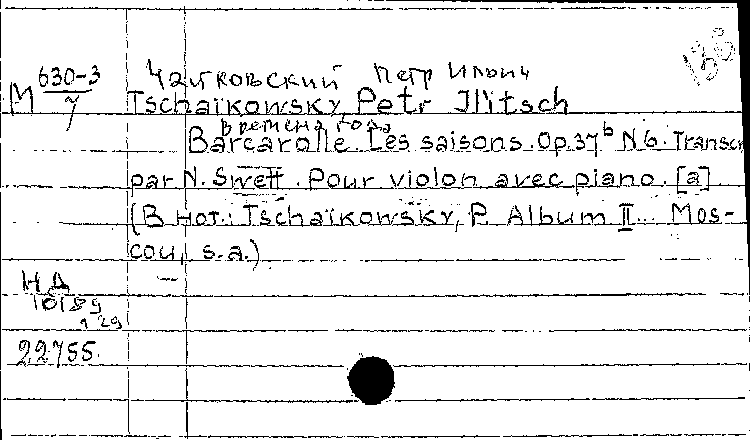 М 630-3
7
Чайковский Петр Ильич
Tschaïkowsky, Petr Ilitsch
Времена года
Barcarolle. Les saisons. Op. 37ᵇ N 6. Transcr
par N. Swett. Pour violon avec piano. [а]
(В нот.: Tschaïkowsky, P. Album II... Mos-
cou, s.a.)
НД
10189
22755.